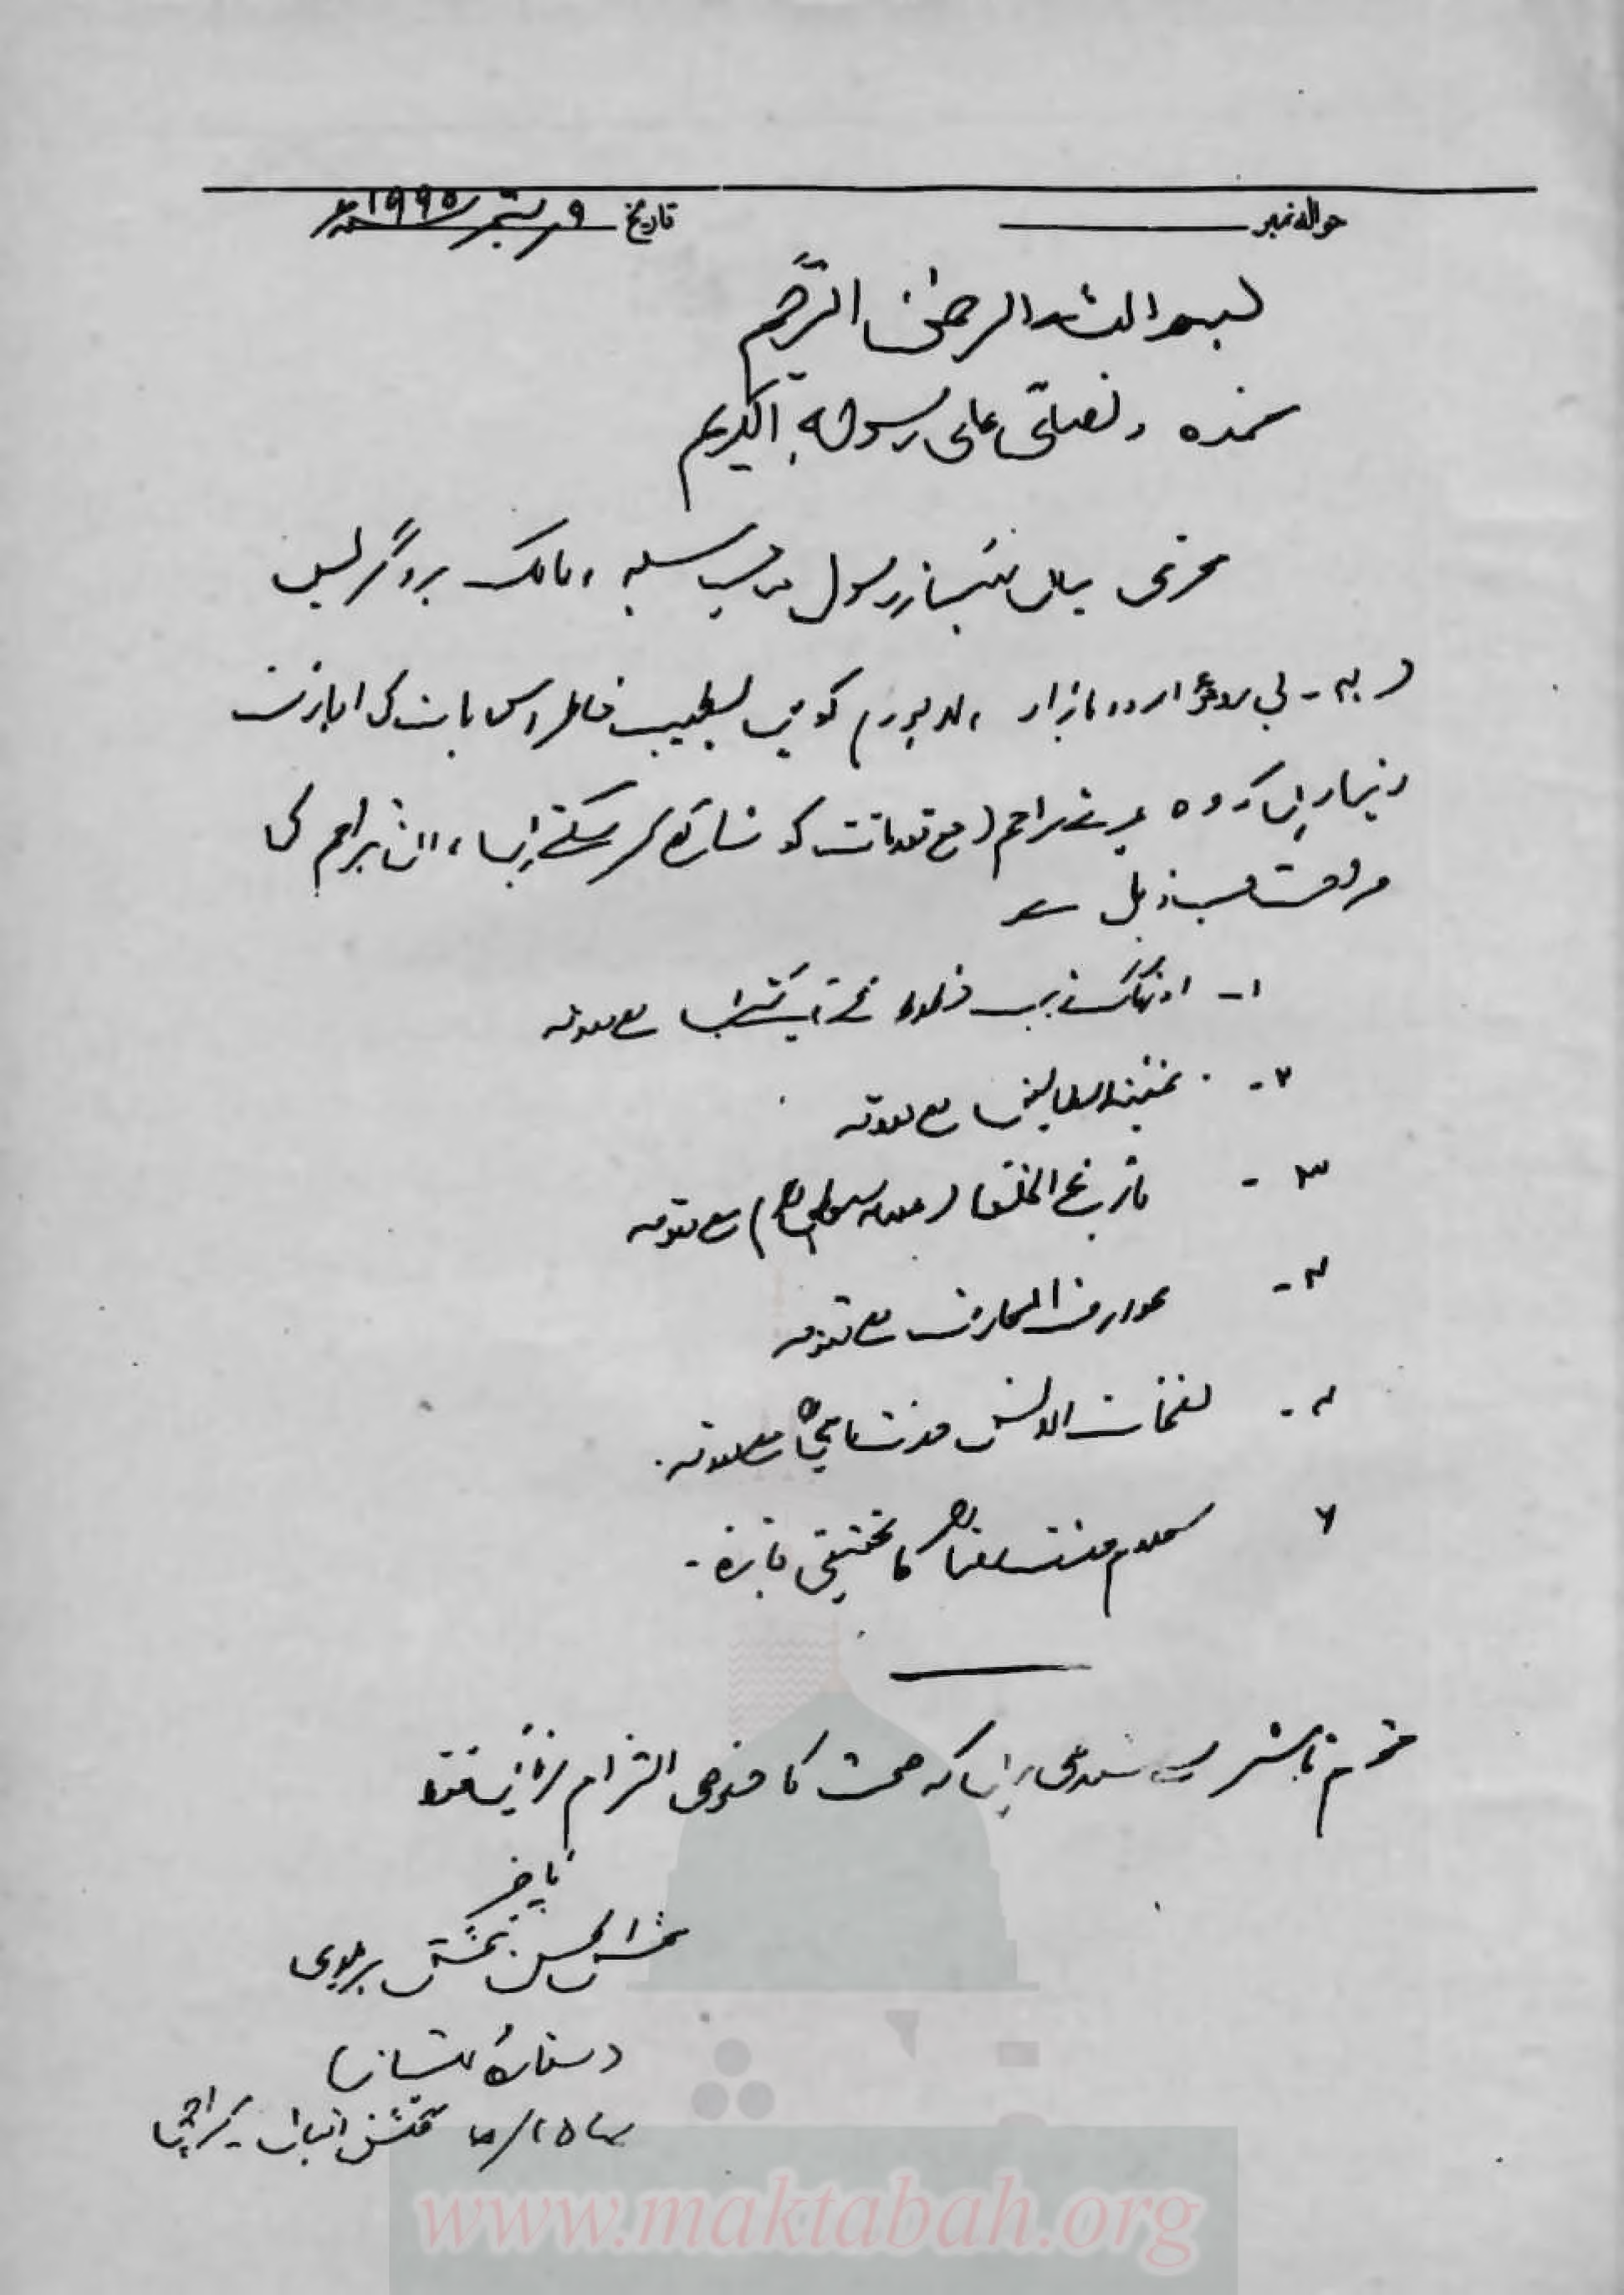 حوالہ نمبر
تاریخ ۹ ستمبر ۱۹۹۵ء
بسم اللہ الرحمٰن الرحیم
نحمدہ و نصلی علی رسولہ الکریم
محترمی میاں غلام رسول صاحب سلمہ، مالک پروگریسو
۴۰ - بی اردو بازار، لاہور) کو میں بطیب خاطر اس بات کی اجازت
دیتا ہوں کہ وہ میرے تراجم (مع مقدمات کو شائع کر سکتے ہیں، ان تراجم کی
صراحت حسب ذیل ہے
۱- اورنگ زیب خطوط کے آئینے میں مع مقدمہ
۲- غنیۃ الطالبین مع مقدمہ
۳- تاریخ الخلفا (علامہ سیوطیؒ) مع مقدمہ
۴- عوارف المعارف مع مقدمہ
نفحات الانس حضرت جامیؒ مع مقدمہ
۶ کلام حضرت رضاؒ کا تحقیقی جائزہ -
محترم ناشر سے متمنی ہوں کہ صحت کا خصوصی التزام فرمائیں فقط
ناچیز
شمس الحسن شمس بریلوی
(ستارۂ امتیاز)
گلشن اقبال - کراچی
www.maktabah.org